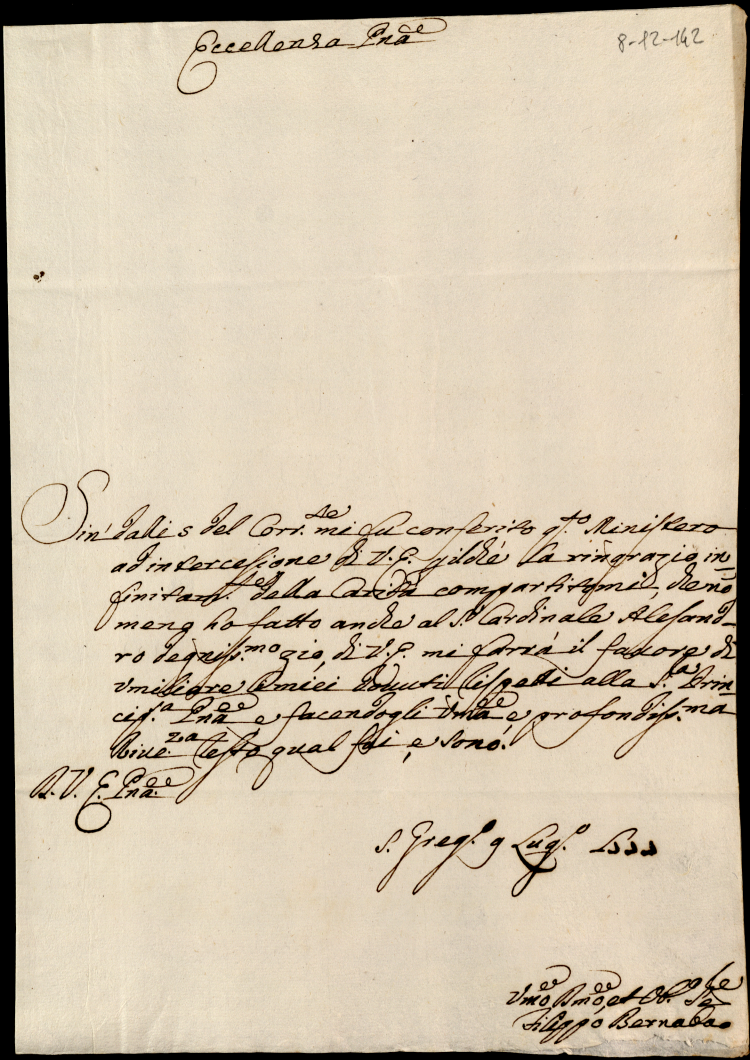 Eccellenza Pnã
8-12-142
Sin' dalli 5 del Corr.te mi fù conferito q.to Ministero
ad intercesione di V.E. gilche la ringrazio in=
finitam.te della Carità compartitomi, che nõ
meno ho fatto anche al S.r Cardinale Alesand=
ro degniss.mo zio di V.E. mi farrà il favore di
umiliare li miei dovuti rispetti alla S.ra Prin
cip.a Pnã e facendogli Umã e profondiss.ma
Rive.za resto qual fui, e sono.
D. V. E. Pnã
S. Greg.o 9 Lug.o
Umõ Dmõ, et Obb. Se.
Filippo Bernabao